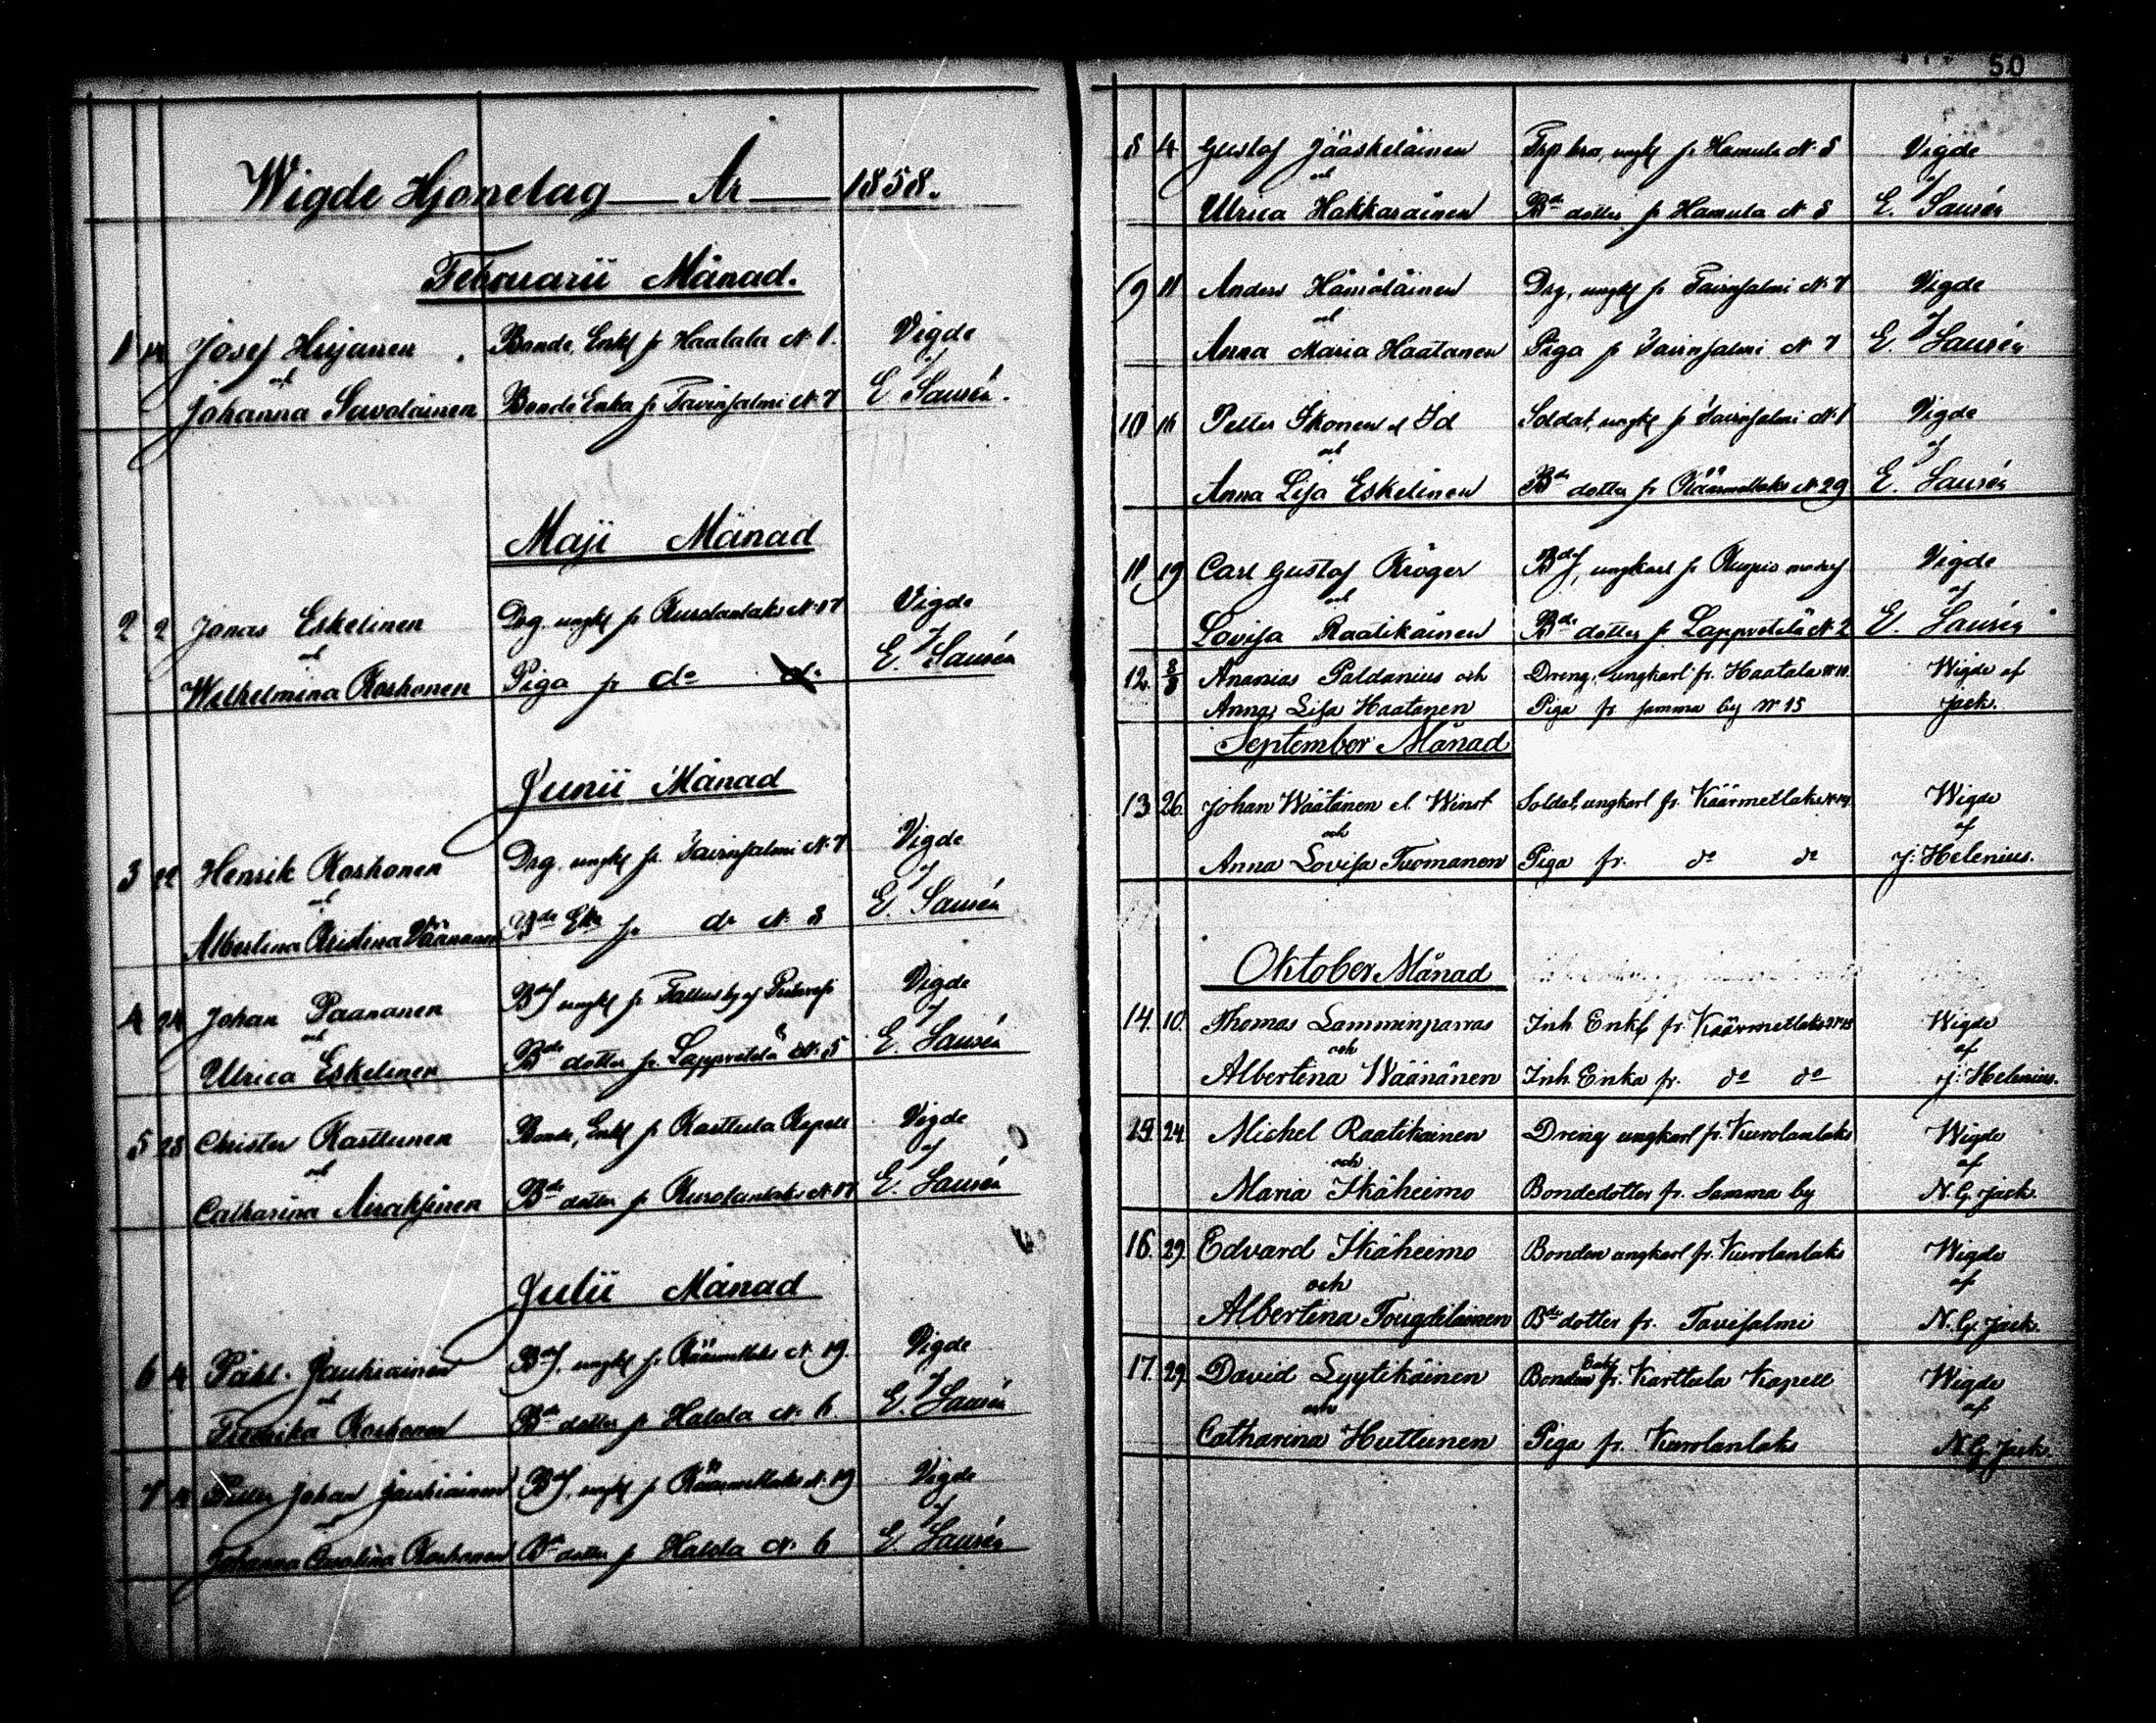 Wigde Hjonelag — År — 1858.
Februarii Månad.
1 Josef Hujanen Bonde, Enkl fr Haatala N. 1. Vigde
och af
Johanna Savolainen Bonde Enka fr Tavinsalmi N. 7 E Saurén.
Maji Månad
2 2 Jonas Eskelinen Drg. ungkl fr Kurolanlaks N. 17 Vigde
och af
Wilhelmina Koskonen Piga fr do do E. Saurén
Junii Månad
3 22 Henrik Koskonen Drg. ungkl fr. Tavinsalmi N. 7 Vigde
och af
Albertina Kristina Väänänen Bde Eka fr do N. 8 E. Saurén
4 24 Johan Paananen Bdes ungkl fr Tallus by af Vigde
och af
Ulrica Eskelinen Bde dotter fr. Lappvetelä N. 5 E. Saurén
5 28 Christer Karttunen Bonde, Enkl fr Karttula Kapell Vigde
och af
Catharina Airaksinen Bde dotter fr Kurolanlaks N. 17 E. Saurén
Julii Månad
6 4 Påhl Jauhiainen Bdes, ungkl fr Käärmetlaks N. 19. Vigde
och af
Fredrika Koskonen Bde dotter fr Halola N. 6. E. Saurén
7 4 Petter Johan Jauhiainen Bdes, ungkl fr Käärmetlaks N. 19 Vigde
och af
Johanna Carolina Koskonen Bde dotter fr Halola N. 6 E Saurén
50
8 4 Gustaf Jääskeläinen Trp bro, ungkl fr Hamula N. 8 Vigde
och af
Ulrica Hakkarainen Bde dotter fr Hamula N. 8 E. Saurén
9 11 Anders Hämäläinen Drg, ungkl fr Tavinsalmi N. 7 Vigde
och af
Anna Maria Haatanen Piga fr Tavinsalmi N 7 E. Saurén
10 16 Petter Ikonen el Id Soldat, ungkl fr Tavinsalmi N. 1 Vigde
och af
Anna Lisa Eskelinen Bde dotter fr Käärmetlaks N. 29 E. Saurén
11 19 Carl Gustaf Kröger Bdes, ungkarl fr Kuopio Vigde
och af
Lovisa Raatikainen Bde dotter fr Lappvetelä N. 2 E. Saurén
12. 8/8 Ananias Paldanius och Dreng, ungkarl fr. Haatala Wigde af
Anna Lisa Haatanen Piga fr samma by No 15 Jack.
September Månad
13 26. Johan Wäätänen el. Winst Soldat, ungkarl fr. Käärmetlaks Wigde
och af
Anna Lovisa Tuomanen Piga fr. do do J. Helenius.
Oktober Månad
14. 10. Thomas Lamminparras Inh Enkl fr. Käärmetlaks Wigde
och af
Albertina Wäänänen Inh. Enka fr. do do J. Helenius.
29 24. Michel Raatikainen Dreng ungkarl fr. Kurolanlaks Wigde
och af
Maria Ikäheimo Bondedotter fr. Samma by N. G. Jack.
16. 29. Edvard Ikäheimo Bonden ungkarl fr. Kurolanlaks Wigde
och af
Albertina Tougdilainen Bde dotter fr. Tavisalmi N. G. Jack.
17. 29. David Lyytikäinen Bonden Enkl fr. Karttula Kapell Wigde
och af
Catharina Huttunen Piga fr. Kurolanlaks N. G. Jack.